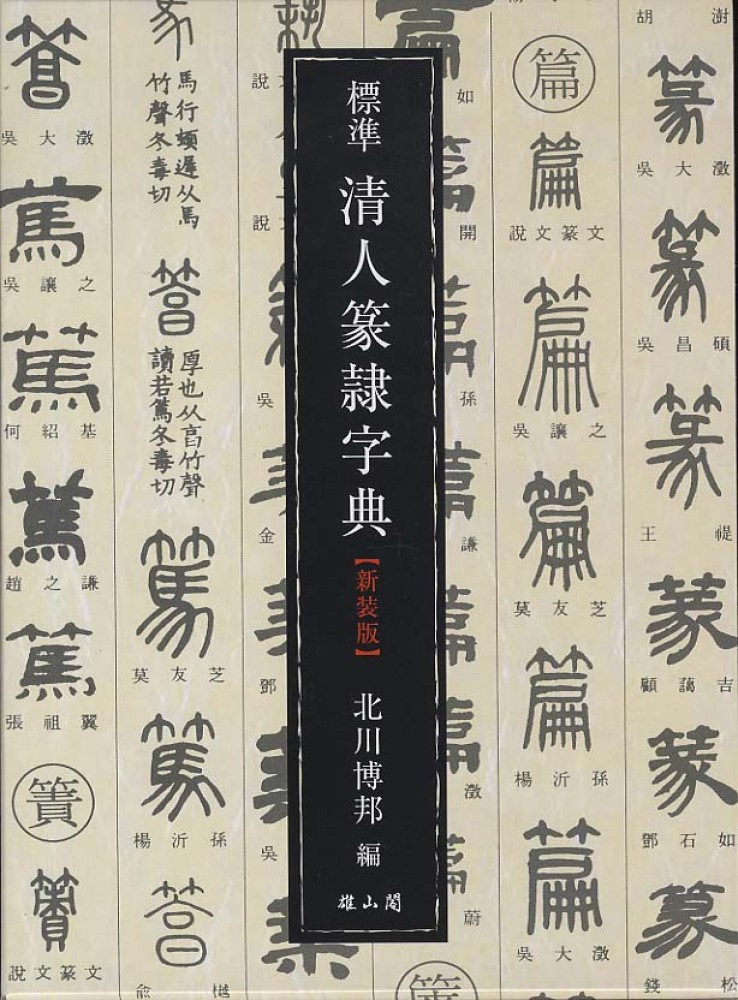 標準 清人篆隷字典
【新装版】
北川博邦 編
雄山閣
胡澍
篆
吳大澂
篆
吳昌碩
篆
王禔
篆
顧藹吉
篆
鄧石如
篆
錢松
篇
篇
說文篆文
篇
吳讓之
篇
莫友芝
篇
楊沂孫
篇
吳大澂
篇
如
開
孫
謙
澂
蔚
說文
說
吳
金
鄧
吳
篆
馬行頓遲从馬
竹聲冬毒切
厚也从亯竹聲
讀若篤冬毒切
篤
莫友芝
篤
楊沂孫
俞樾
吳大澂
篤
吳讓之
篤
何紹基
篤
趙之謙
篤
張祖翼
簀
簀
說文篆文